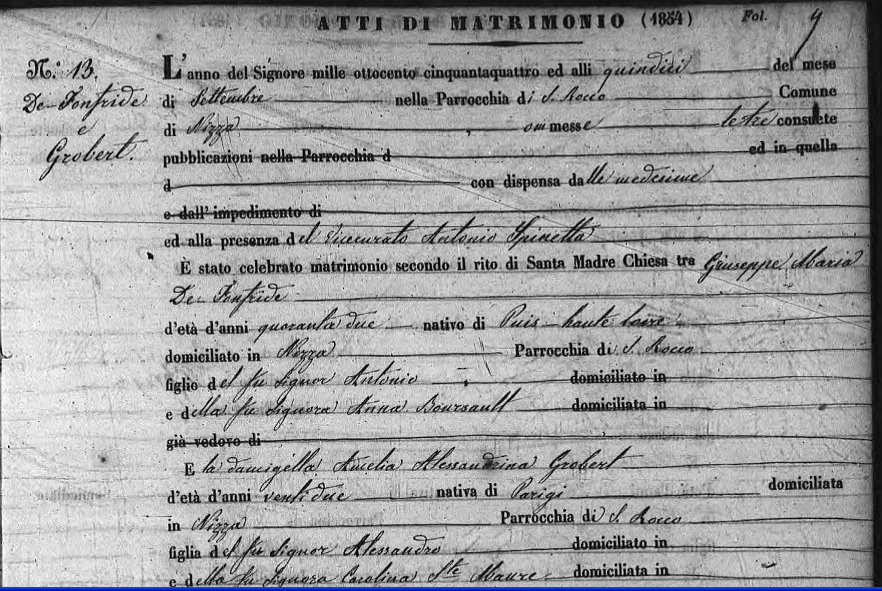 ATTI DI MATRIMONIO (1854) Fol. 9
N.° 13.
De-Fonfride
e
Grobert.
L'anno del Signore mille ottocento cinquantaquattro ed alli quindici del mese
di Settembre nella Parrocchia di S. Rocco Comune
di Nizza, ommesse le tre consuete
pubblicazioni nella Parrocchia d ed in quella
d con dispensa dalle medesime
e dall' impedimento di
ed alla presenza del Vicecurato Antonio Spinetta
È stato celebrato matrimonio secondo il rito di Santa Madre Chiesa tra Giuseppe Maria
De-Fonfride
d'età d'anni quaranta due nativo di Puis-haute loire
domiciliato in Nizza Parrocchia di S. Rocco
figlio del fu Signor Antonio domiciliato in
e della fu Signora Anna Boursault domiciliata in
già vedovo di
E la damigella Amelia Alessandrina Grobert
d'età d'anni ventidue nativa di Parigi domiciliata
in Nizza Parrocchia di S. Rocco
figlia del fu Signor Alessandro domiciliato in
e della fu Signora Carolina Ste Maure domiciliata in